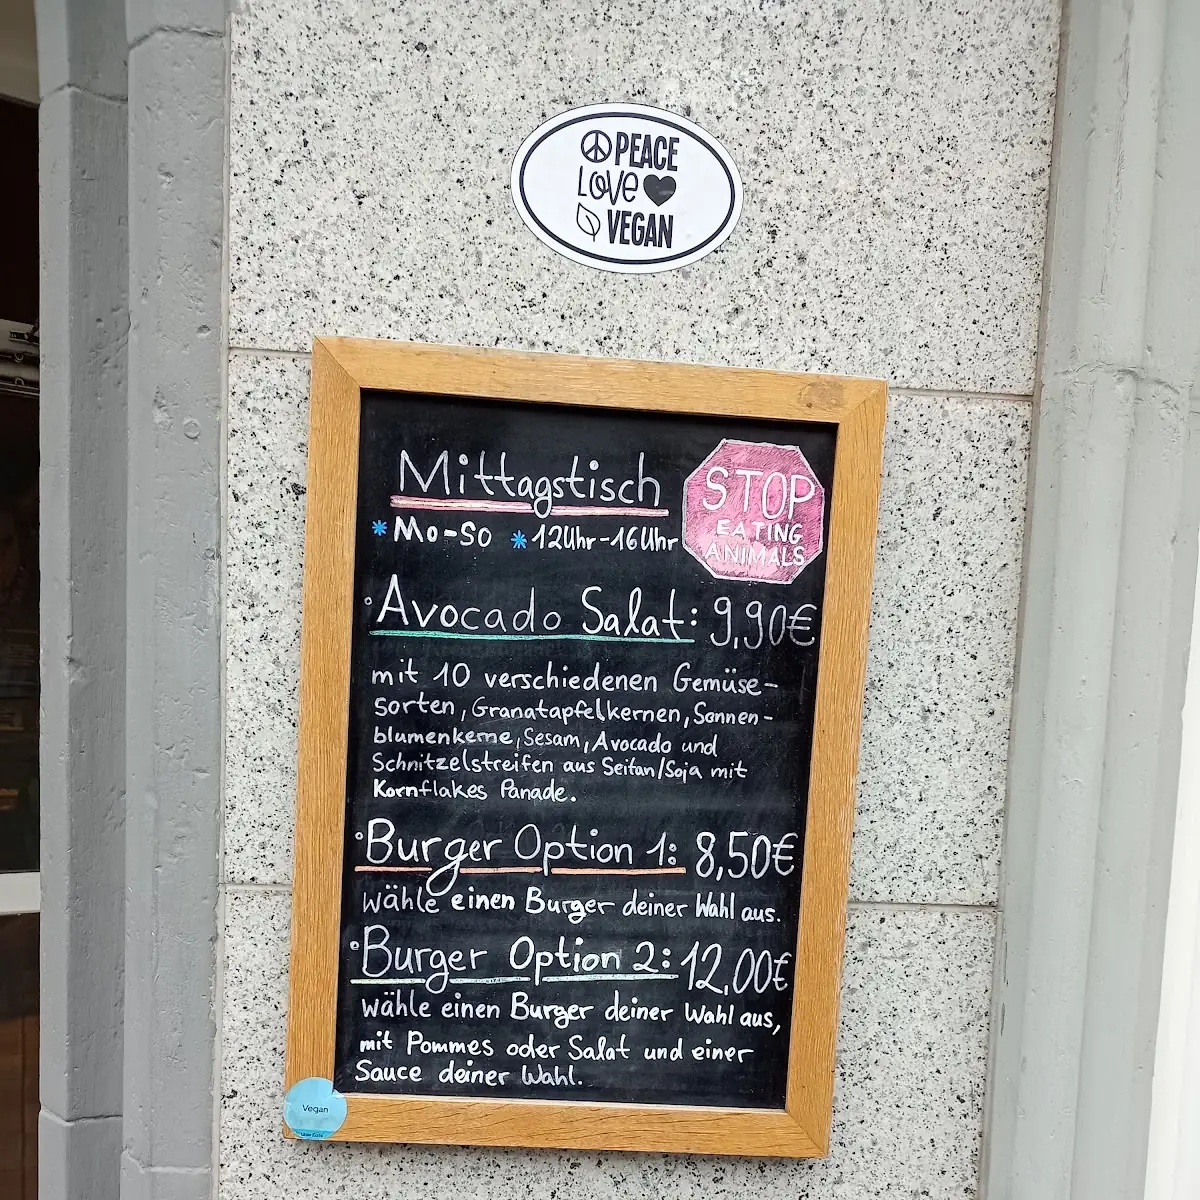 PEACE
LOVE
VEGAN
Mittagstisch
Mo-So 12Uhr-16Uhr
STOP
EATING
ANIMALS
Avocado Salat: 9,90€
mit 10 verschiedenen Gemüse-
sorten, Granatapfelkernen, Sonnen-
blumenkerne, Sesam, Avocado und
Schnitzelstreifen aus Seitan/Soja mit
Kornflakes Panade.
Burger Option 1: 8,50€
wähle einen Burger deiner Wahl aus.
Burger Option 2: 12,00€
wähle einen Burger deiner Wahl aus,
mit Pommes oder Salat und einer
Sauce deiner Wahl.
Vegan
Uber Eats